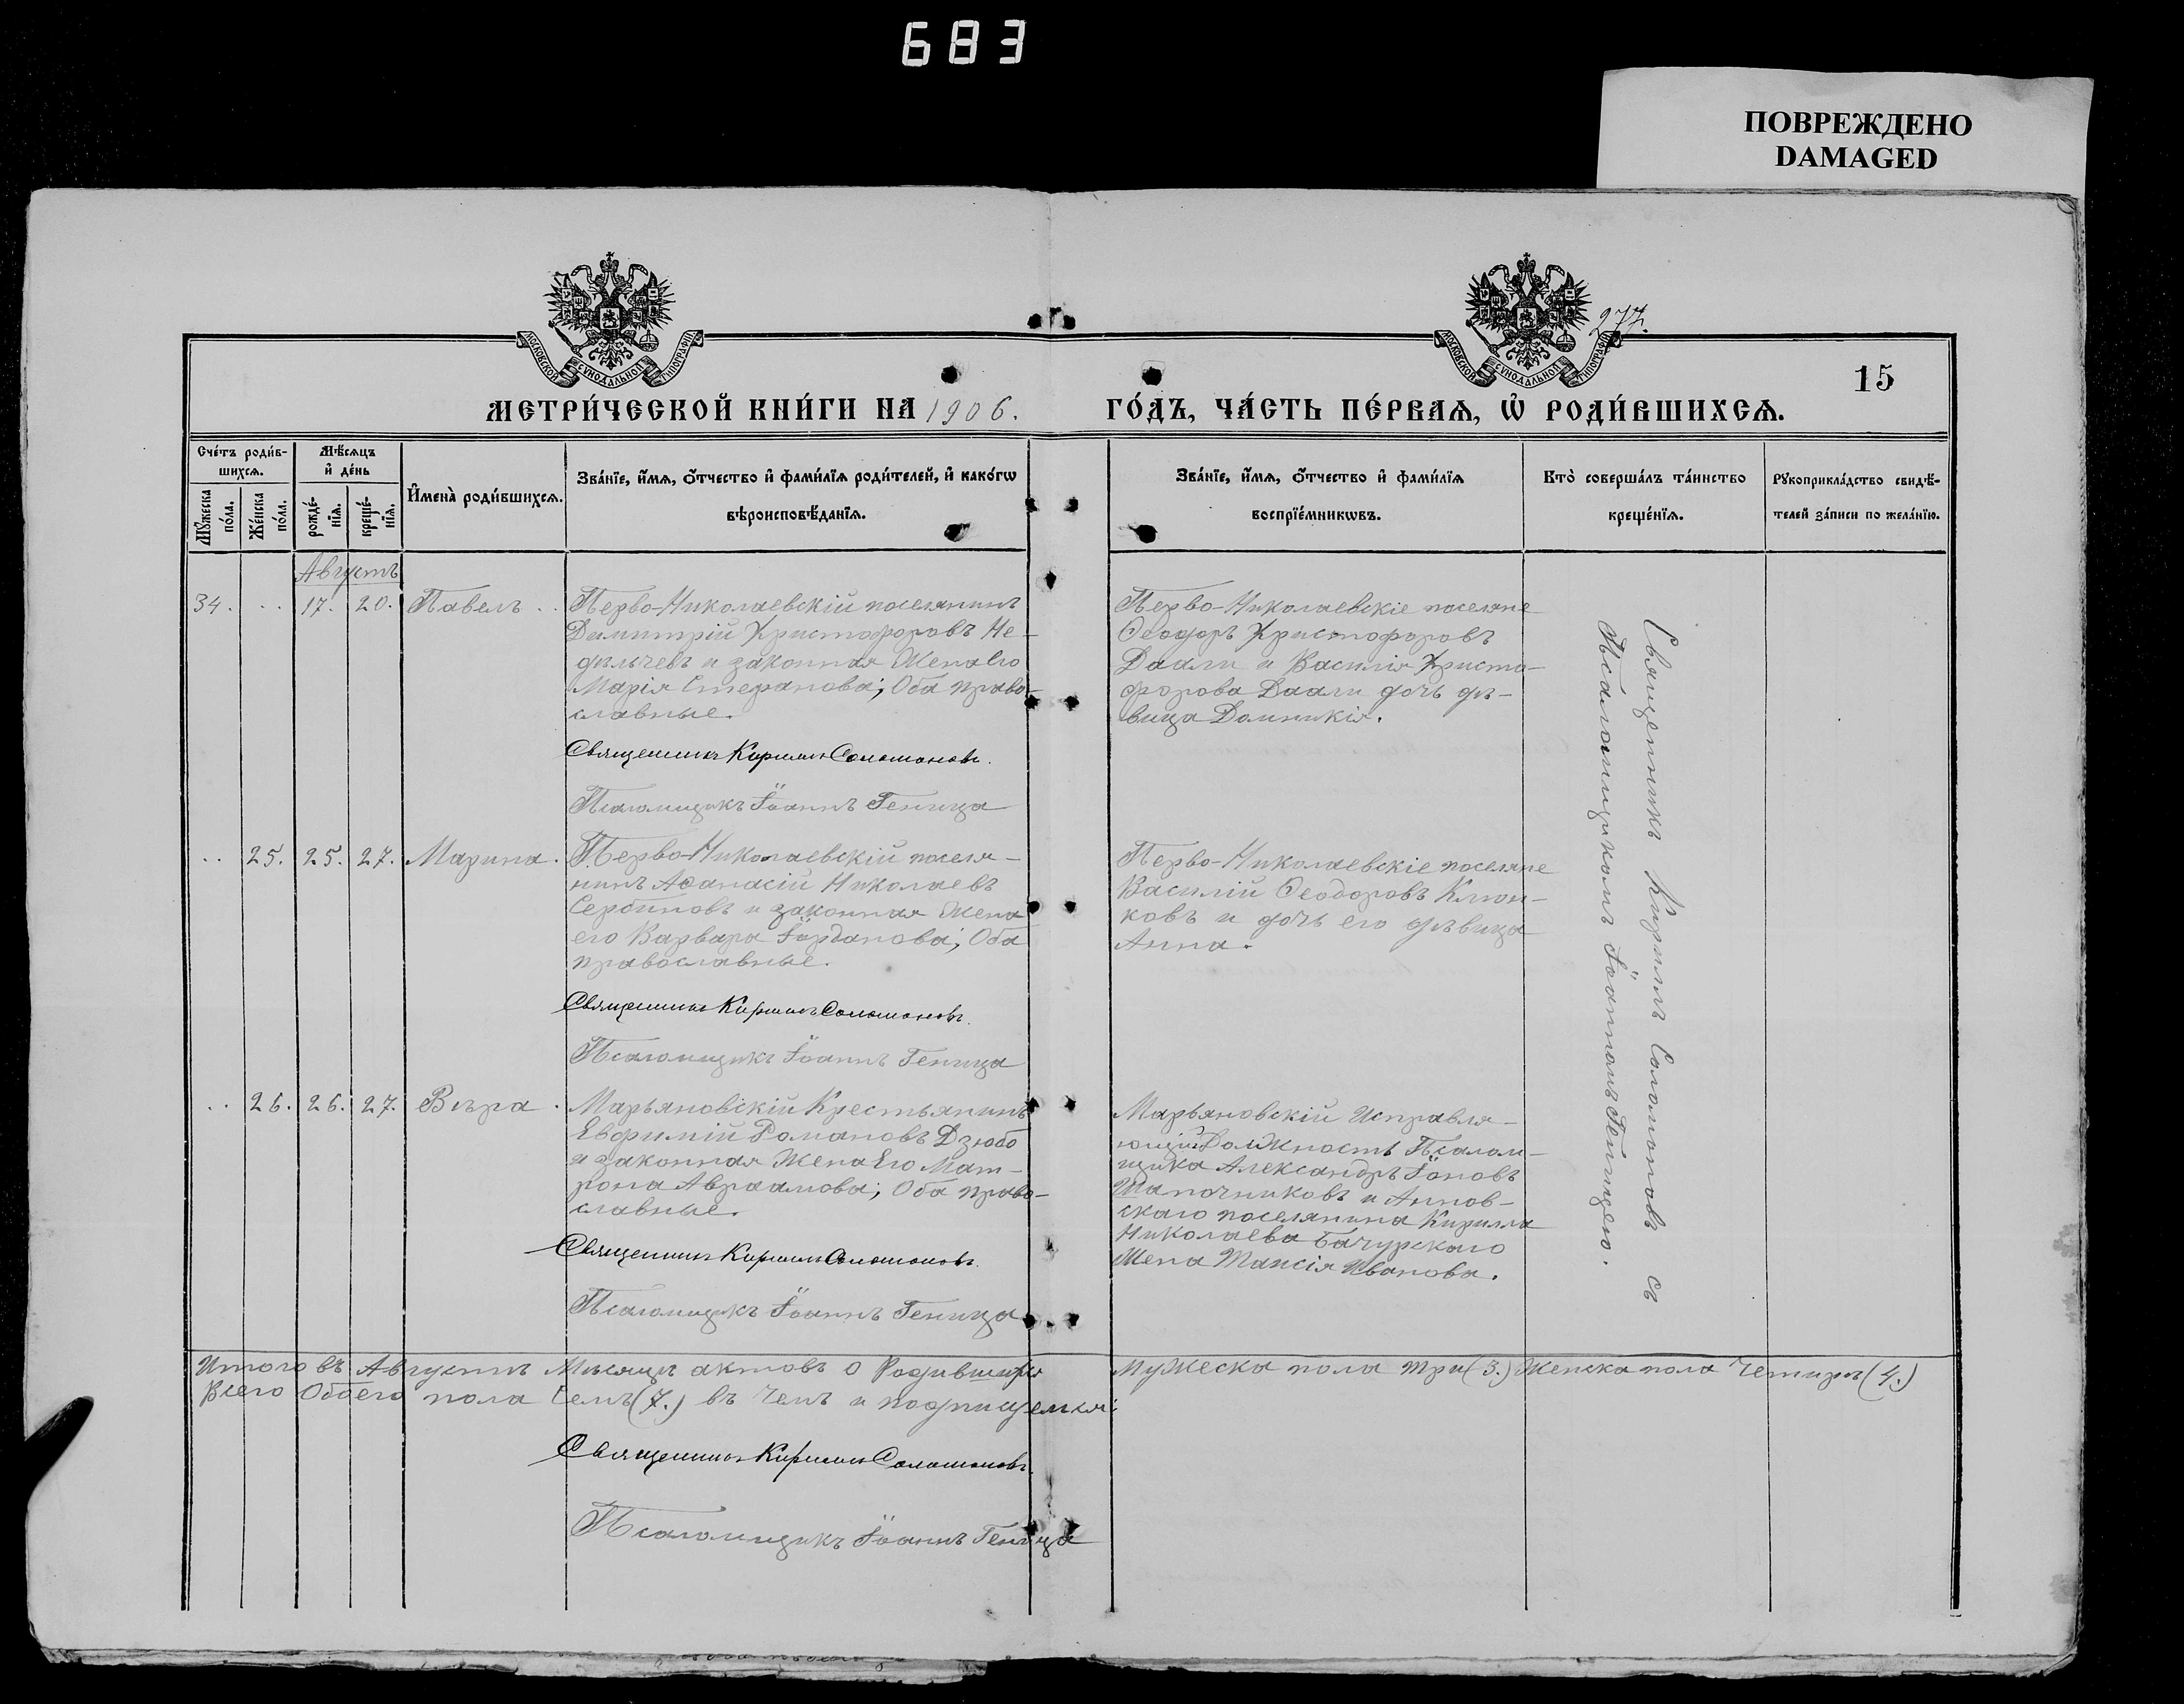 683
ПОВРЕЖДЕНО
DAMAGED
277.
15
МОСКОВСКОЙ СѴНОДАЛЬНОЙ ТИПОГРАФІИ
МОСКОВСКОЙ СѴНОДАЛЬНОЙ ТИПОГРАФІИ
МЕТРИ́ЧЕСКОЙ КНИ́ГИ НА 1906. ГО́ДЪ, ЧА́СТЬ ПЕ́РВАѦ, Ѿ РОДИ́ВШИХСѦ.
Сче́тъ роди́в-
шихсѧ.
Мꙋ́жеска по́ла.
Же́нска по́ла.
Мѣ́сѧцъ
и҆ де́нь
рожде́-
нїѧ.
креще́-
нїѧ.
И҆мена̀ роди́вшихсѧ.
Зва́нїе, и҆́мѧ, ѻ҆́тчество и҆ фами́лїѧ роди́телей, и҆ како́гѡ
вѣроисповѣ́данїѧ.
Зва́нїе, и҆́мѧ, ѻ҆́тчество и҆ фами́лїѧ
воспрїе́мникѡвъ.
Кто̀ соверша́лъ та́инство
креще́нїѧ.
Рꙋкоприкла́дство свидѣ́-
телей за́писи по жела́нїю.
Августъ
34. .. 17. 20. Павелъ ..
Перво-Николаевскій поселянинъ
Димитрій Христофоровъ Не-
дѣльчевъ и законная Жена Его
Марія Стефанова; Оба право-
славные.
Священникъ Кириллъ Соломоновъ.
Псаломщикъ Іоаннъ Геница
Перво-Николаевскіе поселяне
Ѳеодоръ Христофоровъ
Даали и Василія Христо-
форова Даали дочь дѣ-
вица Домникія.
Священникъ Кириллъ Соломоновъ съ
Псаломщикомъ Іоанномъ Геницею.
.. 25. 25. 27. Марина.
Перво-Николаевскій поселя-
нинъ Аѳанасій Николаевъ
Сербиновъ и законная Жена
его Варвара Іорданова; Оба
православные.
Священникъ Кириллъ Соломоновъ.
Псаломщикъ Іоаннъ Геница
Перво-Николаевскіе поселяне
Василій Ѳеодоровъ Клюн-
ковъ и дочь его дѣвица
Анна.
.. 26. 26. 27. Вѣра .
Марьяновскій Крестьянинъ
Евфимій Романовъ Дзюбо
и законная Жена Его Мат-
рона Авраамова; Оба право-
славные.
Священникъ Кириллъ Соломоновъ.
Псаломщикъ Іоаннъ Геница
Марьяновскій Исправля-
ющій Должность Псалом-
щика Александръ Іоновъ
Шапочниковъ и Аннов-
скаго поселянина Кирилла
Николаева Бачурскаго
Жена Таисія Иванова.
Итого въ Августѣ Мѣсяцѣ актовъ о Родившихся Мужеска пола три (3.) Женска пола Четыре (4.)
Всего Обоего пола Семь (7.) въ чемъ и подпишемся:
Священникъ Кириллъ Соломоновъ.
Псаломщикъ Іоаннъ Геница